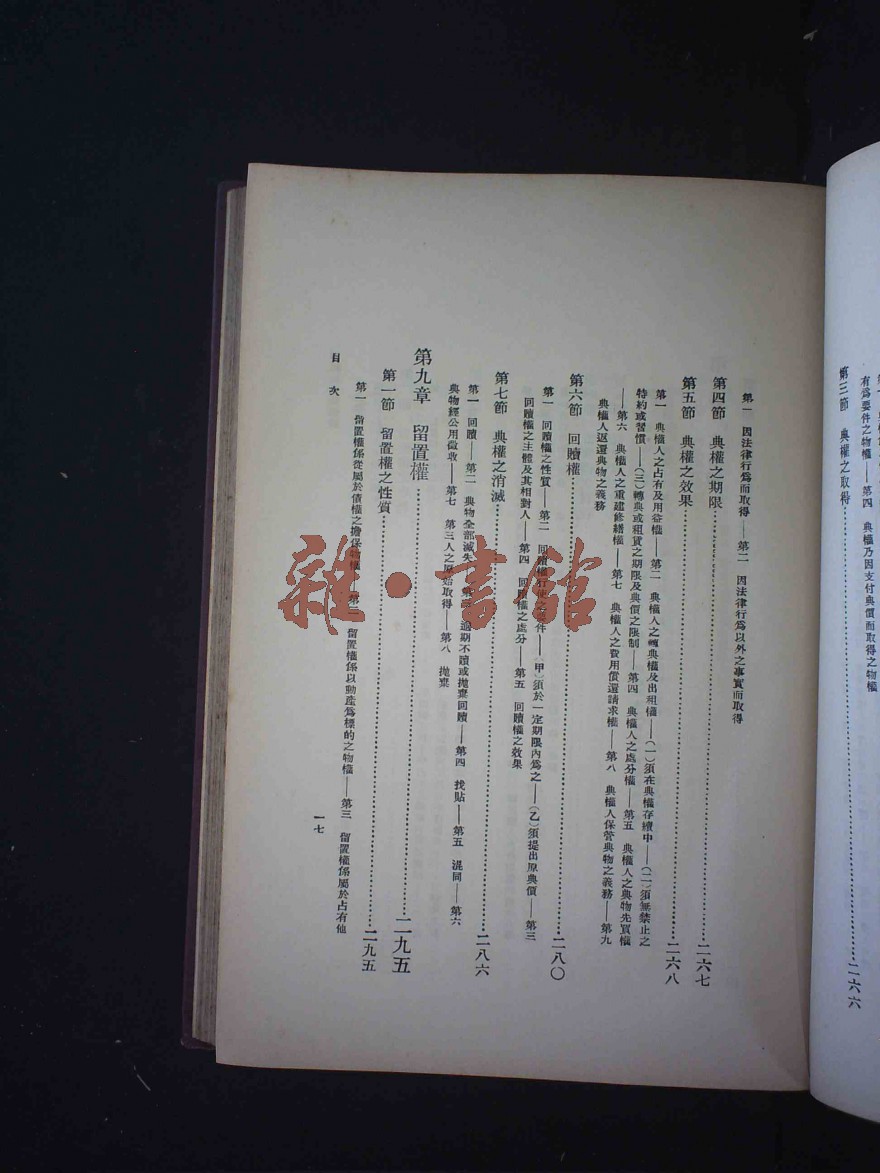 有爲要件之物權——第四　典權乃因支付典價而取得之物權
第三節　典權之取得……二六六
第一　因法律行爲而取得——第二　因法律行爲以外之事實而取得
第四節　典權之期限……二六七
第五節　典權之效果……二六八
第一　典權人之占有及用益權——第二　典權人之轉典權及出租權——（一）須在典權存續中——（二）須無禁止之
特約或習慣——（三）轉典或租賃之期限及典價之限制——第四　典權人之處分權——第五　典權人之典物先買權
——第六　典權人之重建修繕權——第七　典權人之費用償還請求權——第八　典權人保管典物之義務——第九
典權人返還典物之義務
第六節　回贖權……二八〇
第一　回贖權之性質——第二　回贖權行使之要件——（甲）須於一定期限內爲之——（乙）須提出原典價——第三
回贖權之主體及其相對人——第四　回贖權之處分——第五　回贖權之效果
第七節　典權之消滅……二八六
第一　回贖——第二　典物全部滅失——第三　逾期不贖或拋棄回贖——第四　找貼——第五　混同——第六
典物經公用徵收——第七　第三人之原始取得——第八　拋棄
第九章　留置權……二九五
第一節　留置權之性質……二九五
第一　留置權係從屬於債權之擔保物權——第二　留置權係以動產爲標的之物權——第三　留置權係屬於占有他
目次
一七
雜·書館